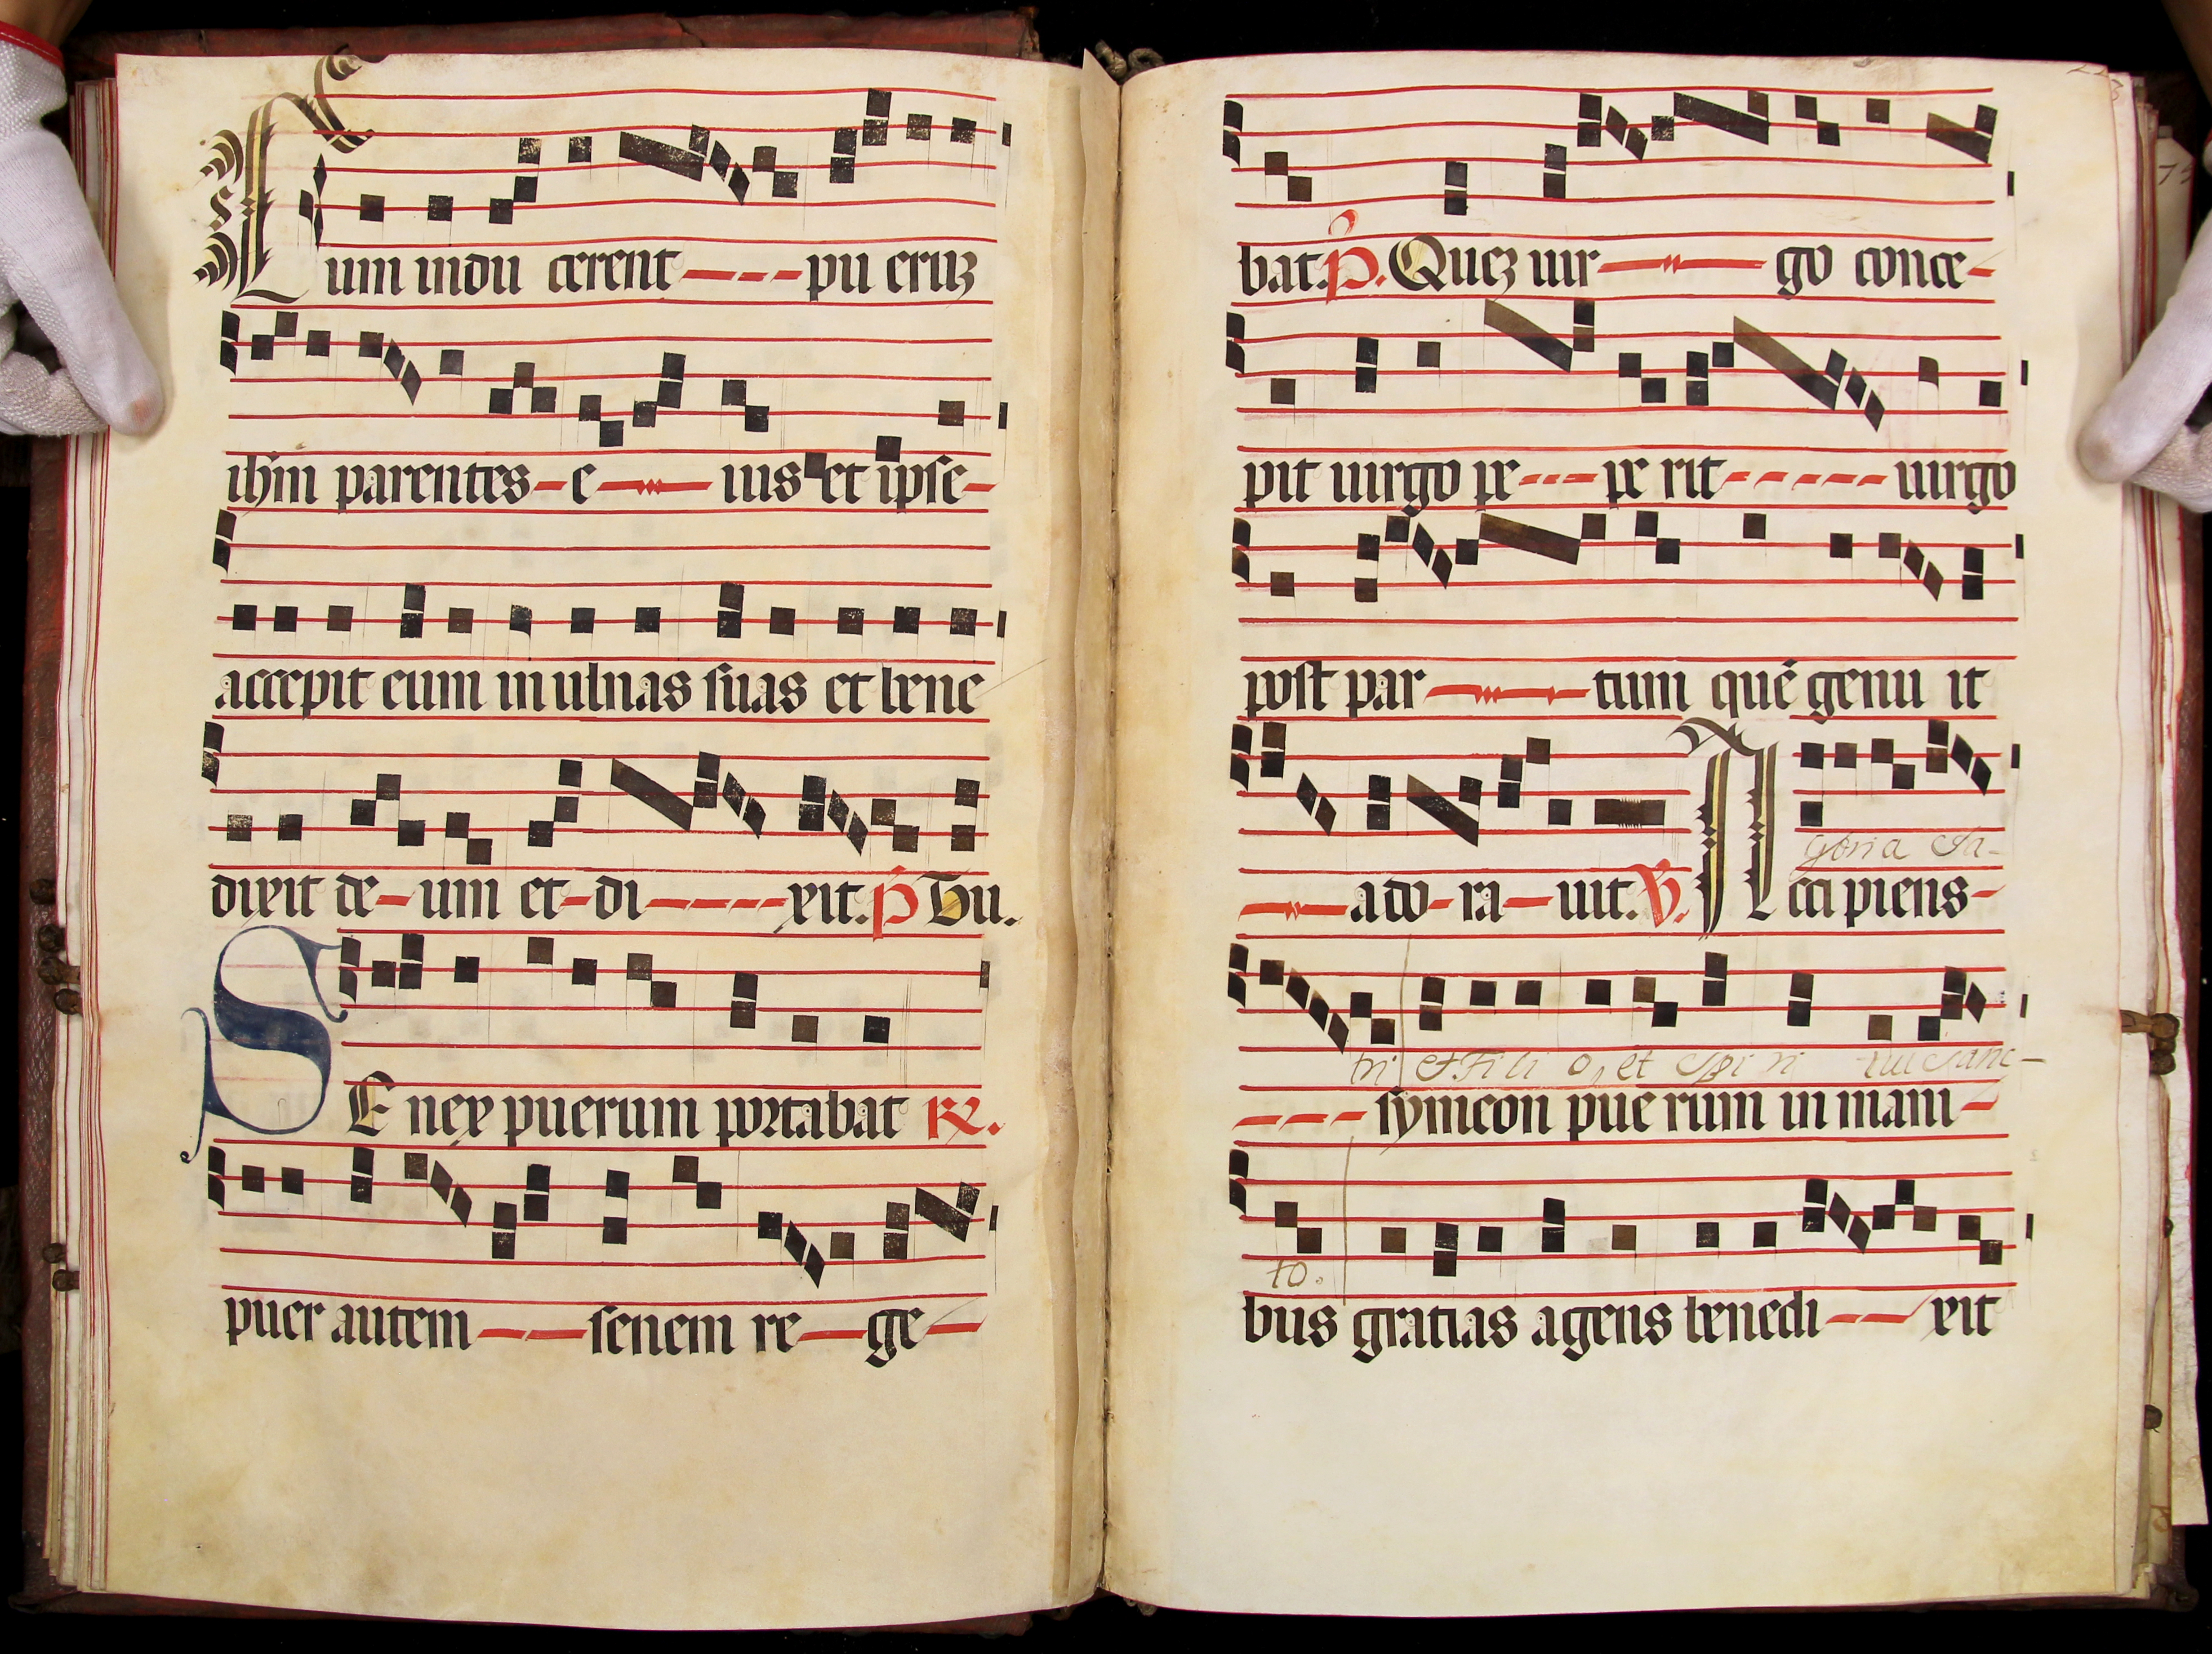 Cum indu cerent pu eruz
ihm parentes e ius et ipse
accepit eum in ulnas suas et bene
dixit de um et di xit. P Tu.
SE nex puerum portabat R.
puer autem senem re ge
bat. P. Quez uir go conce
pit uirgo pe pe rit uirgo
post par tum qué genu it
ado ra uit. V. Acci piens
gloria Pa-
symeon pue rum in mani
tri et Fi li o, et Spi ri tui Sanc-
bus gratias agens benedi xit
to.